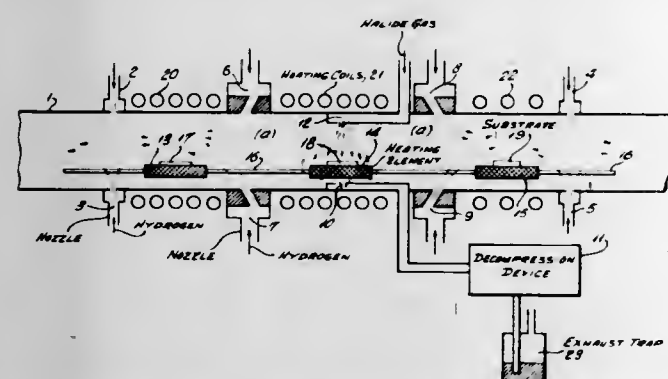 HALIDE GAS
2
20
6
HEATING COILS, 21
8
22
4
1
12
(a)
(a)
SUBSTRATE
13
17
16
18
14
HEATING ELEMENT
19
16
3
10
15
5
NOZZLE
HYDROGEN
7
9
NOZZLE
HYDROGEN
11
DECOMPRESSION
DEVICE
EXHAUST TRAP
23